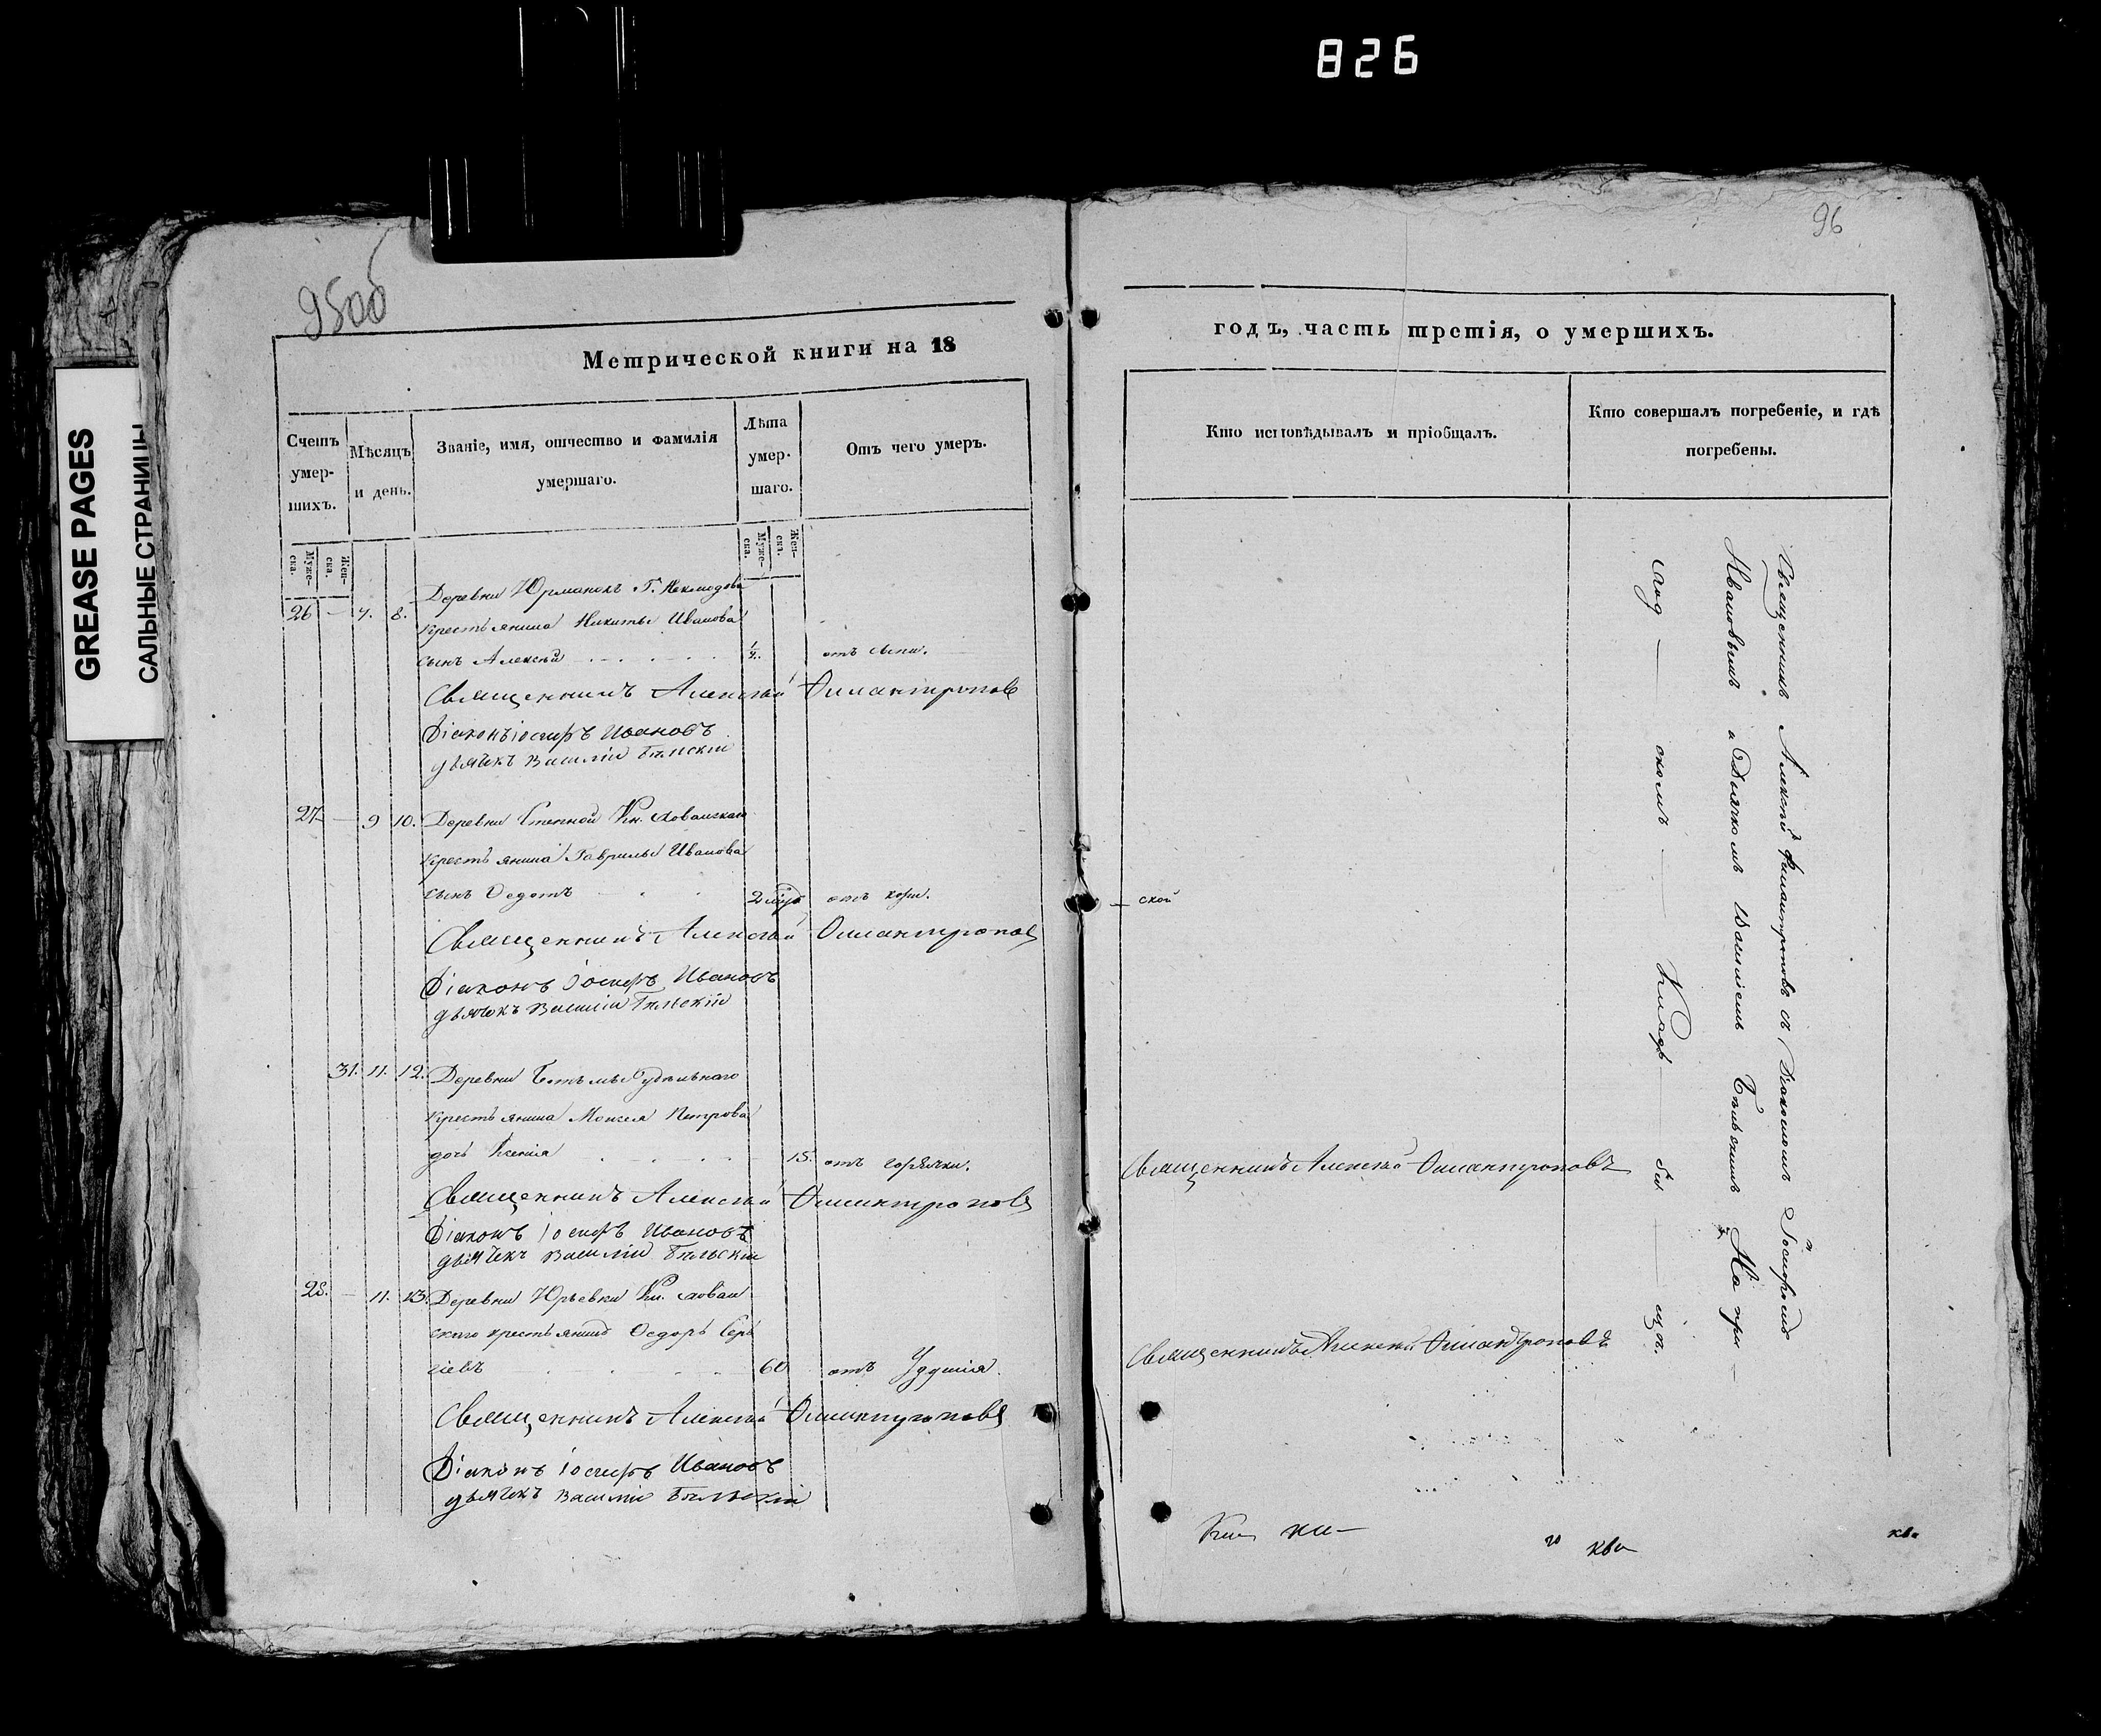 826
GREASE PAGES
САЛЬНЫЕ СТРАНИЦЫ
95об
Метрической книги на 18
Счетъ умер-шихъ.
Мѣсяцъ и день.
Званіе, имя, отчество и фамилія
умершаго.
Лѣта умер-шаго.
Отъ чего умеръ.
Муже-ска.
Жен-ска.
Муже-ска.
Жен-ска.
26 — 7. 8. Деревни Юрманокъ Г.
крестьянина Никиты Иванова
сынъ Алексѣй ½. отъ сыпи.
Священникъ Алексѣй Филантроповъ
Діаконъ Іосифъ Ивановъ
дьячекъ Василій Бѣльскій
27 — 9 10. Деревни Степной Кн. Хованскаго
крестьянина Гаврилы Иванова
сынъ Ѳедотъ 2 отъ кори.
Священникъ Алексѣй Филантроповъ
Діаконъ Іосифъ Ивановъ
дьячокъ Василій Бѣльскій
31. 11. 12. Деревни Ботьмы Удѣльнаго
крестьянина Моисея Петрова
дочь Ксенія 15. отъ горячки.
Священникъ Алексѣй Филантроповъ
Діаконъ Іосифъ Ивановъ
дьячекъ Василій Бѣльскій
28. — 11. 13. Деревни Юрьевки Кн. Хован
скаго крестьянинъ Ѳедоръ Сер
гіевъ 60 отъ Удушія.
Священникъ Алексѣй Филантроповъ
Діаконъ Іосифъ Ивановъ
дьячекъ Василій Бѣльскій
96
годъ, часть третія, о умершихъ.
Кто исповѣдывалъ и пріобщалъ.
Кто совершалъ погребеніе, и гдѣ
погребены.
ской
Священникъ Алексѣй Филантроповъ
Священникъ Алексѣй Филантроповъ
Священникъ Алексѣй Филантроповъ съ Діакономъ Іосифомъ
Ивановымъ и Дьячкомъ Василіемъ Бѣльскимъ На при —
ход — скомъ — Кладъ — би — щѣ.
ки —
го кви
кви